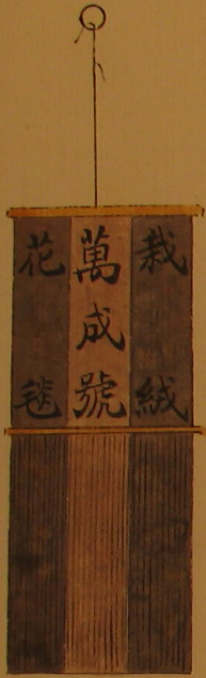 栽絨
萬成號
花毯